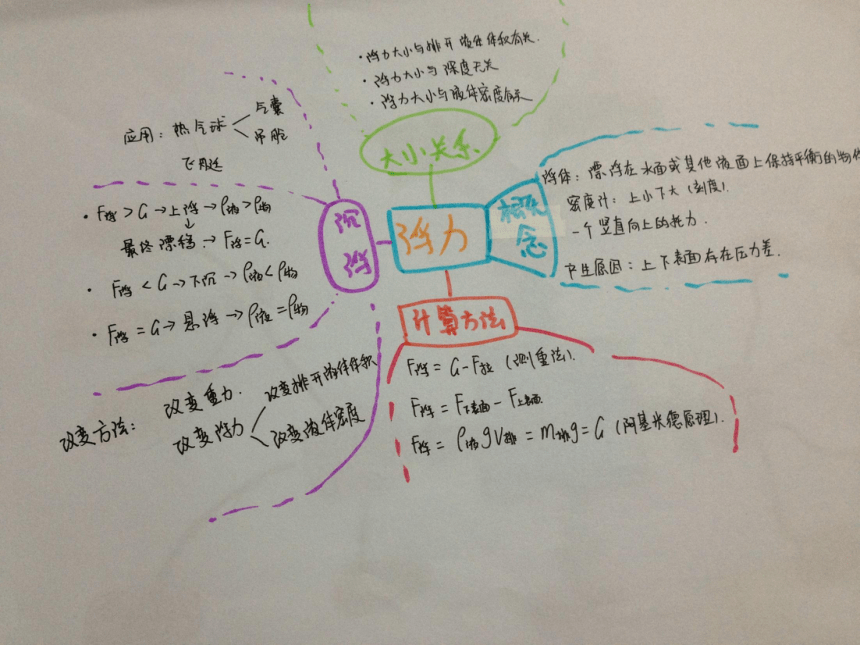 · 浮力大小与排开液体体积有关.
· 浮力大小与深度无关
· 浮力大小与液体密度有关
大小关系
浮力
概念
浮体：漂浮在水面或其他液面上保持平衡的物体
密度计：上小下大（刻度）.
一个竖直向上的托力.
产生原因：上下表面存在压力差.
计算方法
F浮 = G-F拉（测重法）.
F浮 = F下表面 - F上表面.
F浮 = ρ液gV排 = m排g = G（阿基米德原理）.
沉浮
应用：热气球
气囊
吊舱
飞艇
· F浮 > G → 上浮 → ρ液 > ρ物
↓
最终漂 → F浮=G.
· F浮 < G → 下沉 → ρ液 < ρ物
· F浮 = G → 悬浮 → ρ液 = ρ物
改变方法：
改变重力.
改变浮力
改变排开液体体积
改变液体密度